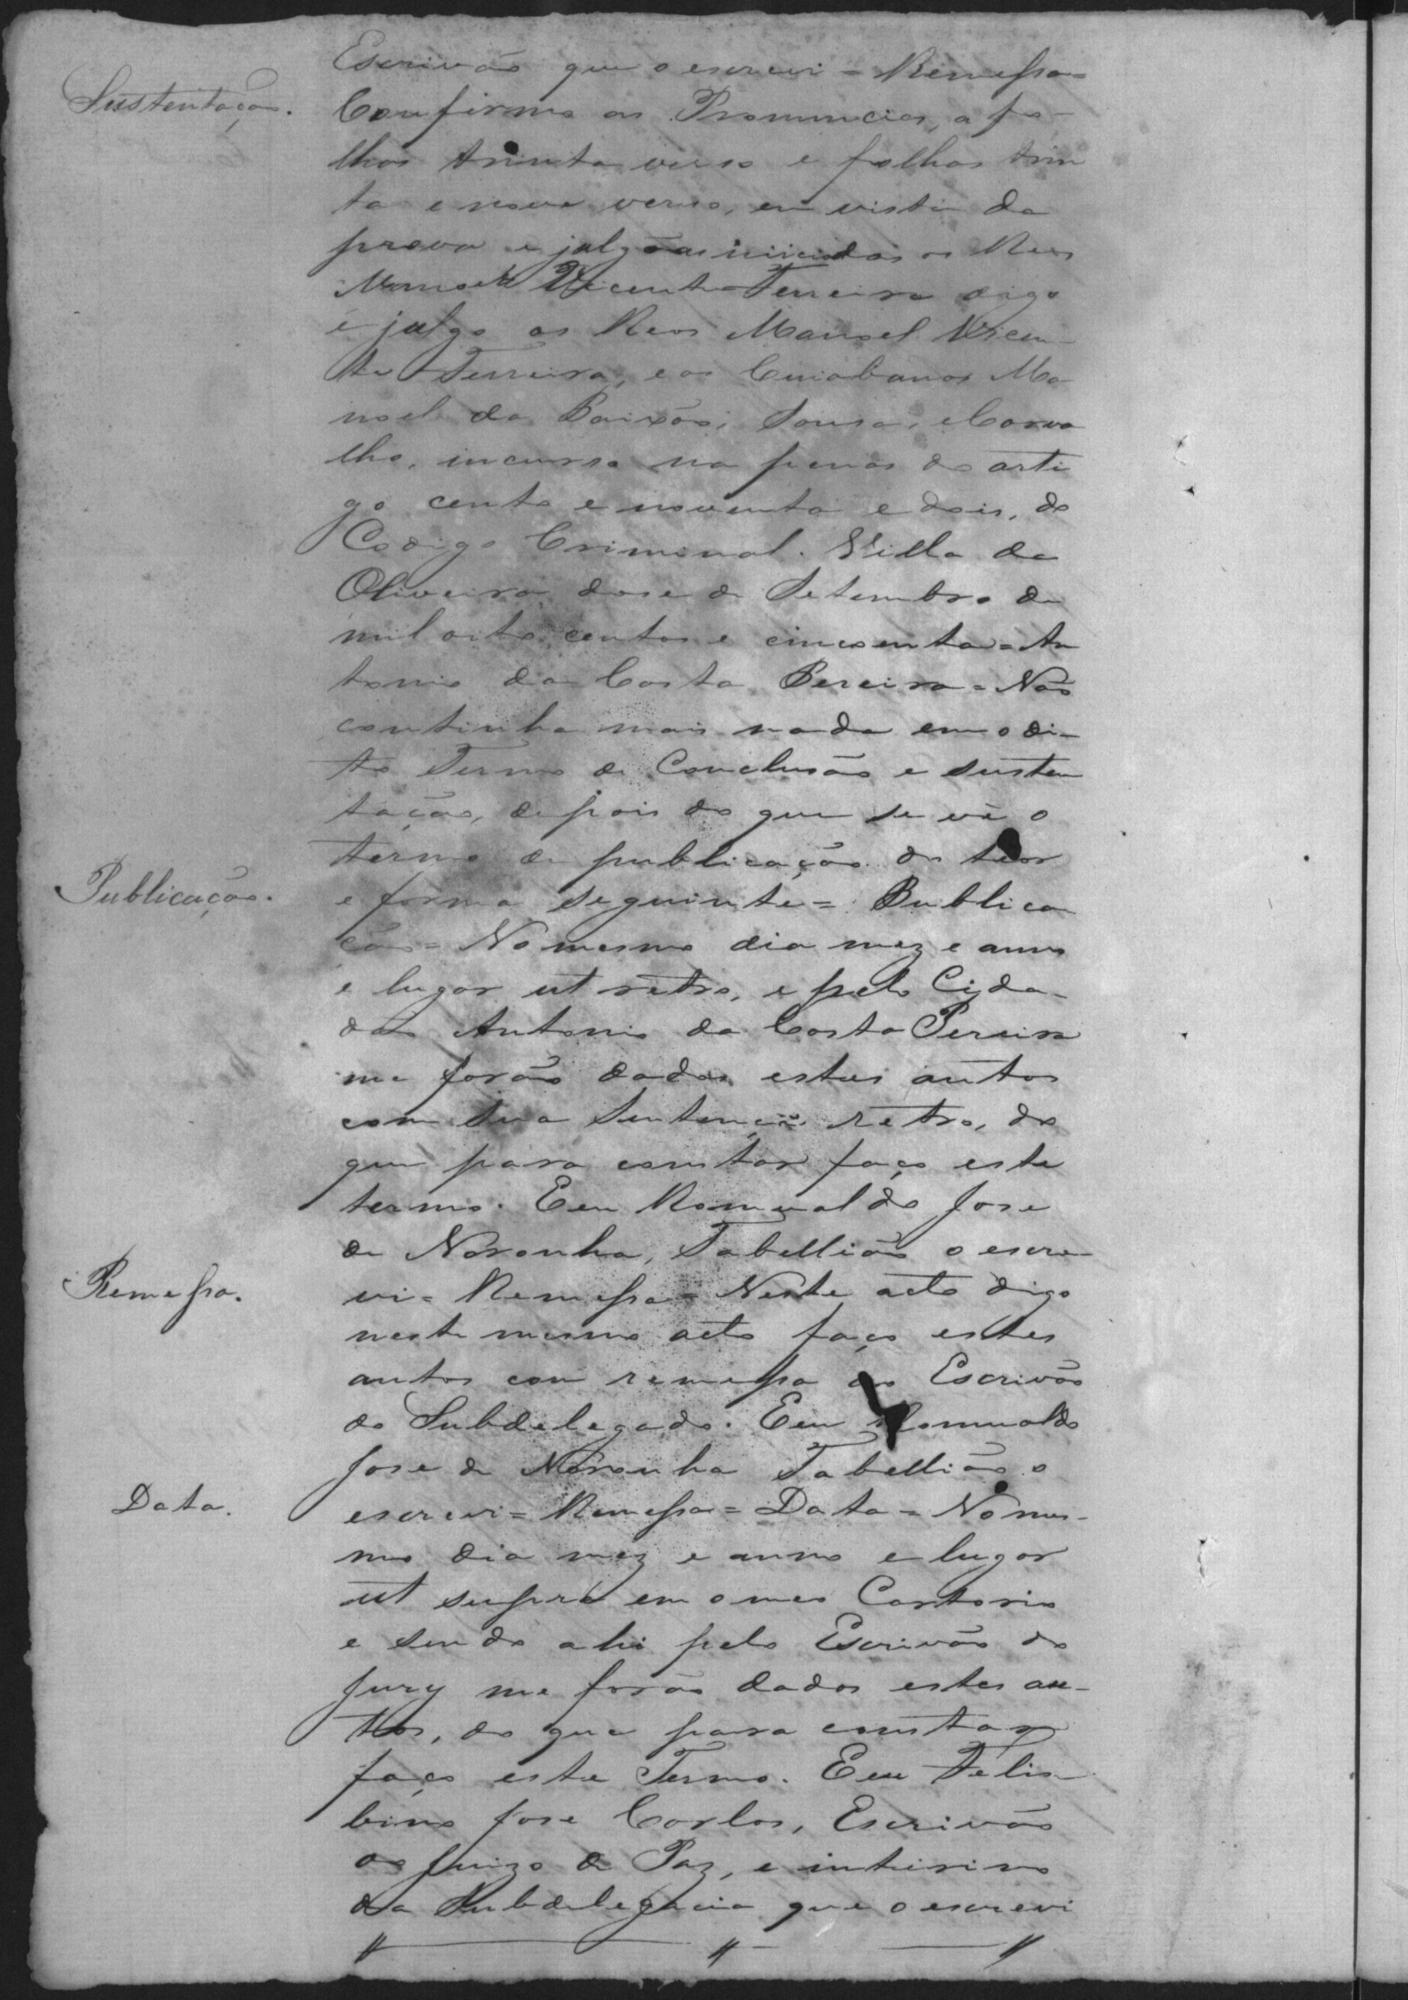 Escrivão que o escrevi = Remessa =
Sustentação.
Confirmo as Pronuncias, a fo-
lhas trinta verso e folhas trin
ta e nove verso, em vista da
prova e julgo as iniciadas os Reos
Manoel Vicente Ferreira digo
e julgo os Reos Manoel Vicen-
te Ferreira, e os Cuiabanos Ma-
noel da Paixão, Sousa, e Carva
lho, incurso na penas do arti
go cento e noventa e dois, do
Codigo Criminal. Villa de
Oliveira dose de Setembro de
mil oito centos e cincoenta = An
tonio da Costa Pereira = Não
continha mais nada em o di-
to Termo de Conclusão e susten
tação, depois do que se vê o
termo de publicação do teor
Publicação.
e forma seguinte = Publica
ção = No mesmo dia mez e anno
e lugar ut retro, e pelo Cida-
dão Antonio da Costa Pereira
me forão dados estes autos
com sua Sentença retro, do
que para constar faço este
termo. Eeu Romualdo Jose
de Noronha, Tabellião o escre-
Remessa.
vi = Remessa = Neste acto digo
neste mesmo acto faço estes
autos com remessa ao Escrivão
do Subdelegado. Eeu Romualdo
Jose de Noronha Tabellião o
Data.
escrevi = Remessa = Data = No mes-
mo dia mez e anno e lugar
ut supra em o meo Cartorio
e sendo ahi pelo Escrivão do
Jury me forão dados estes au-
tos, do que para constar
faço este Termo. Eeu Felis-
bino Jose Carlos, Escrivão
do Juizo de Paz, e interino
da Subdelegacia que o escrevi